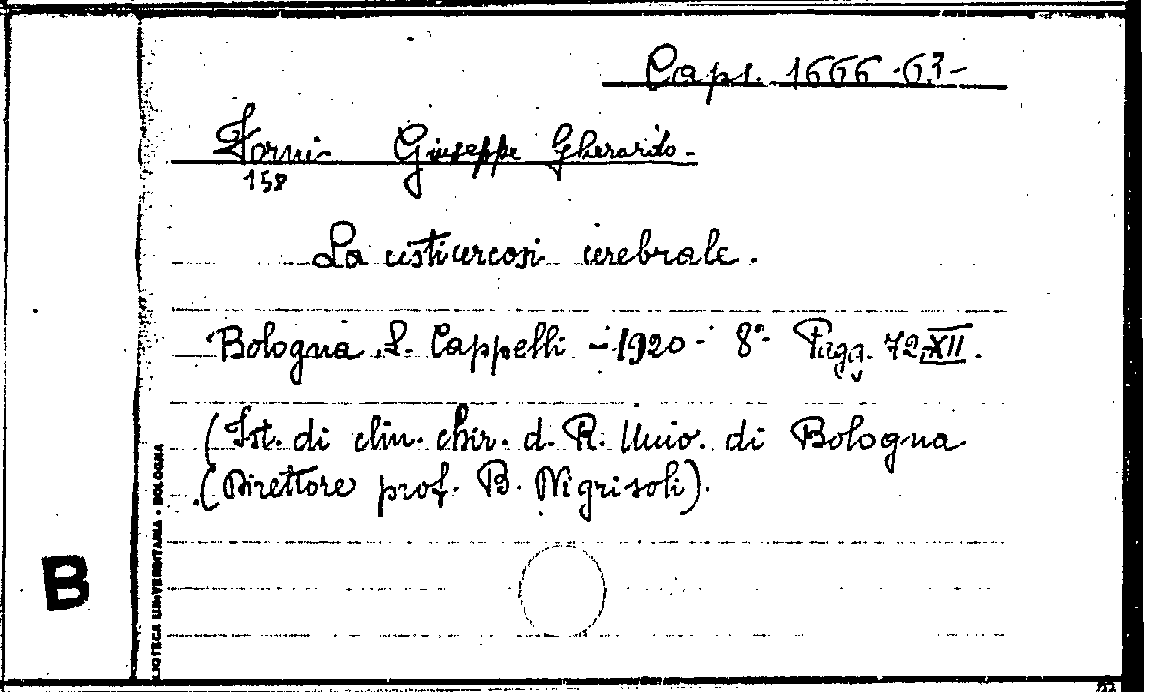 Caps. 1666-63-
Forni Giuseppe Gherardo-
158
La cisticercosi cerebrale.
Bologna L. Cappelli - 1920 - 8° Pagg. 72, XII.
(Ist. di clin. chir. d. R. Univ. di Bologna
(Direttore prof. B. Nigrisoli).
B
BLIOTECA UNIVERSITARIA • BOLOGNA